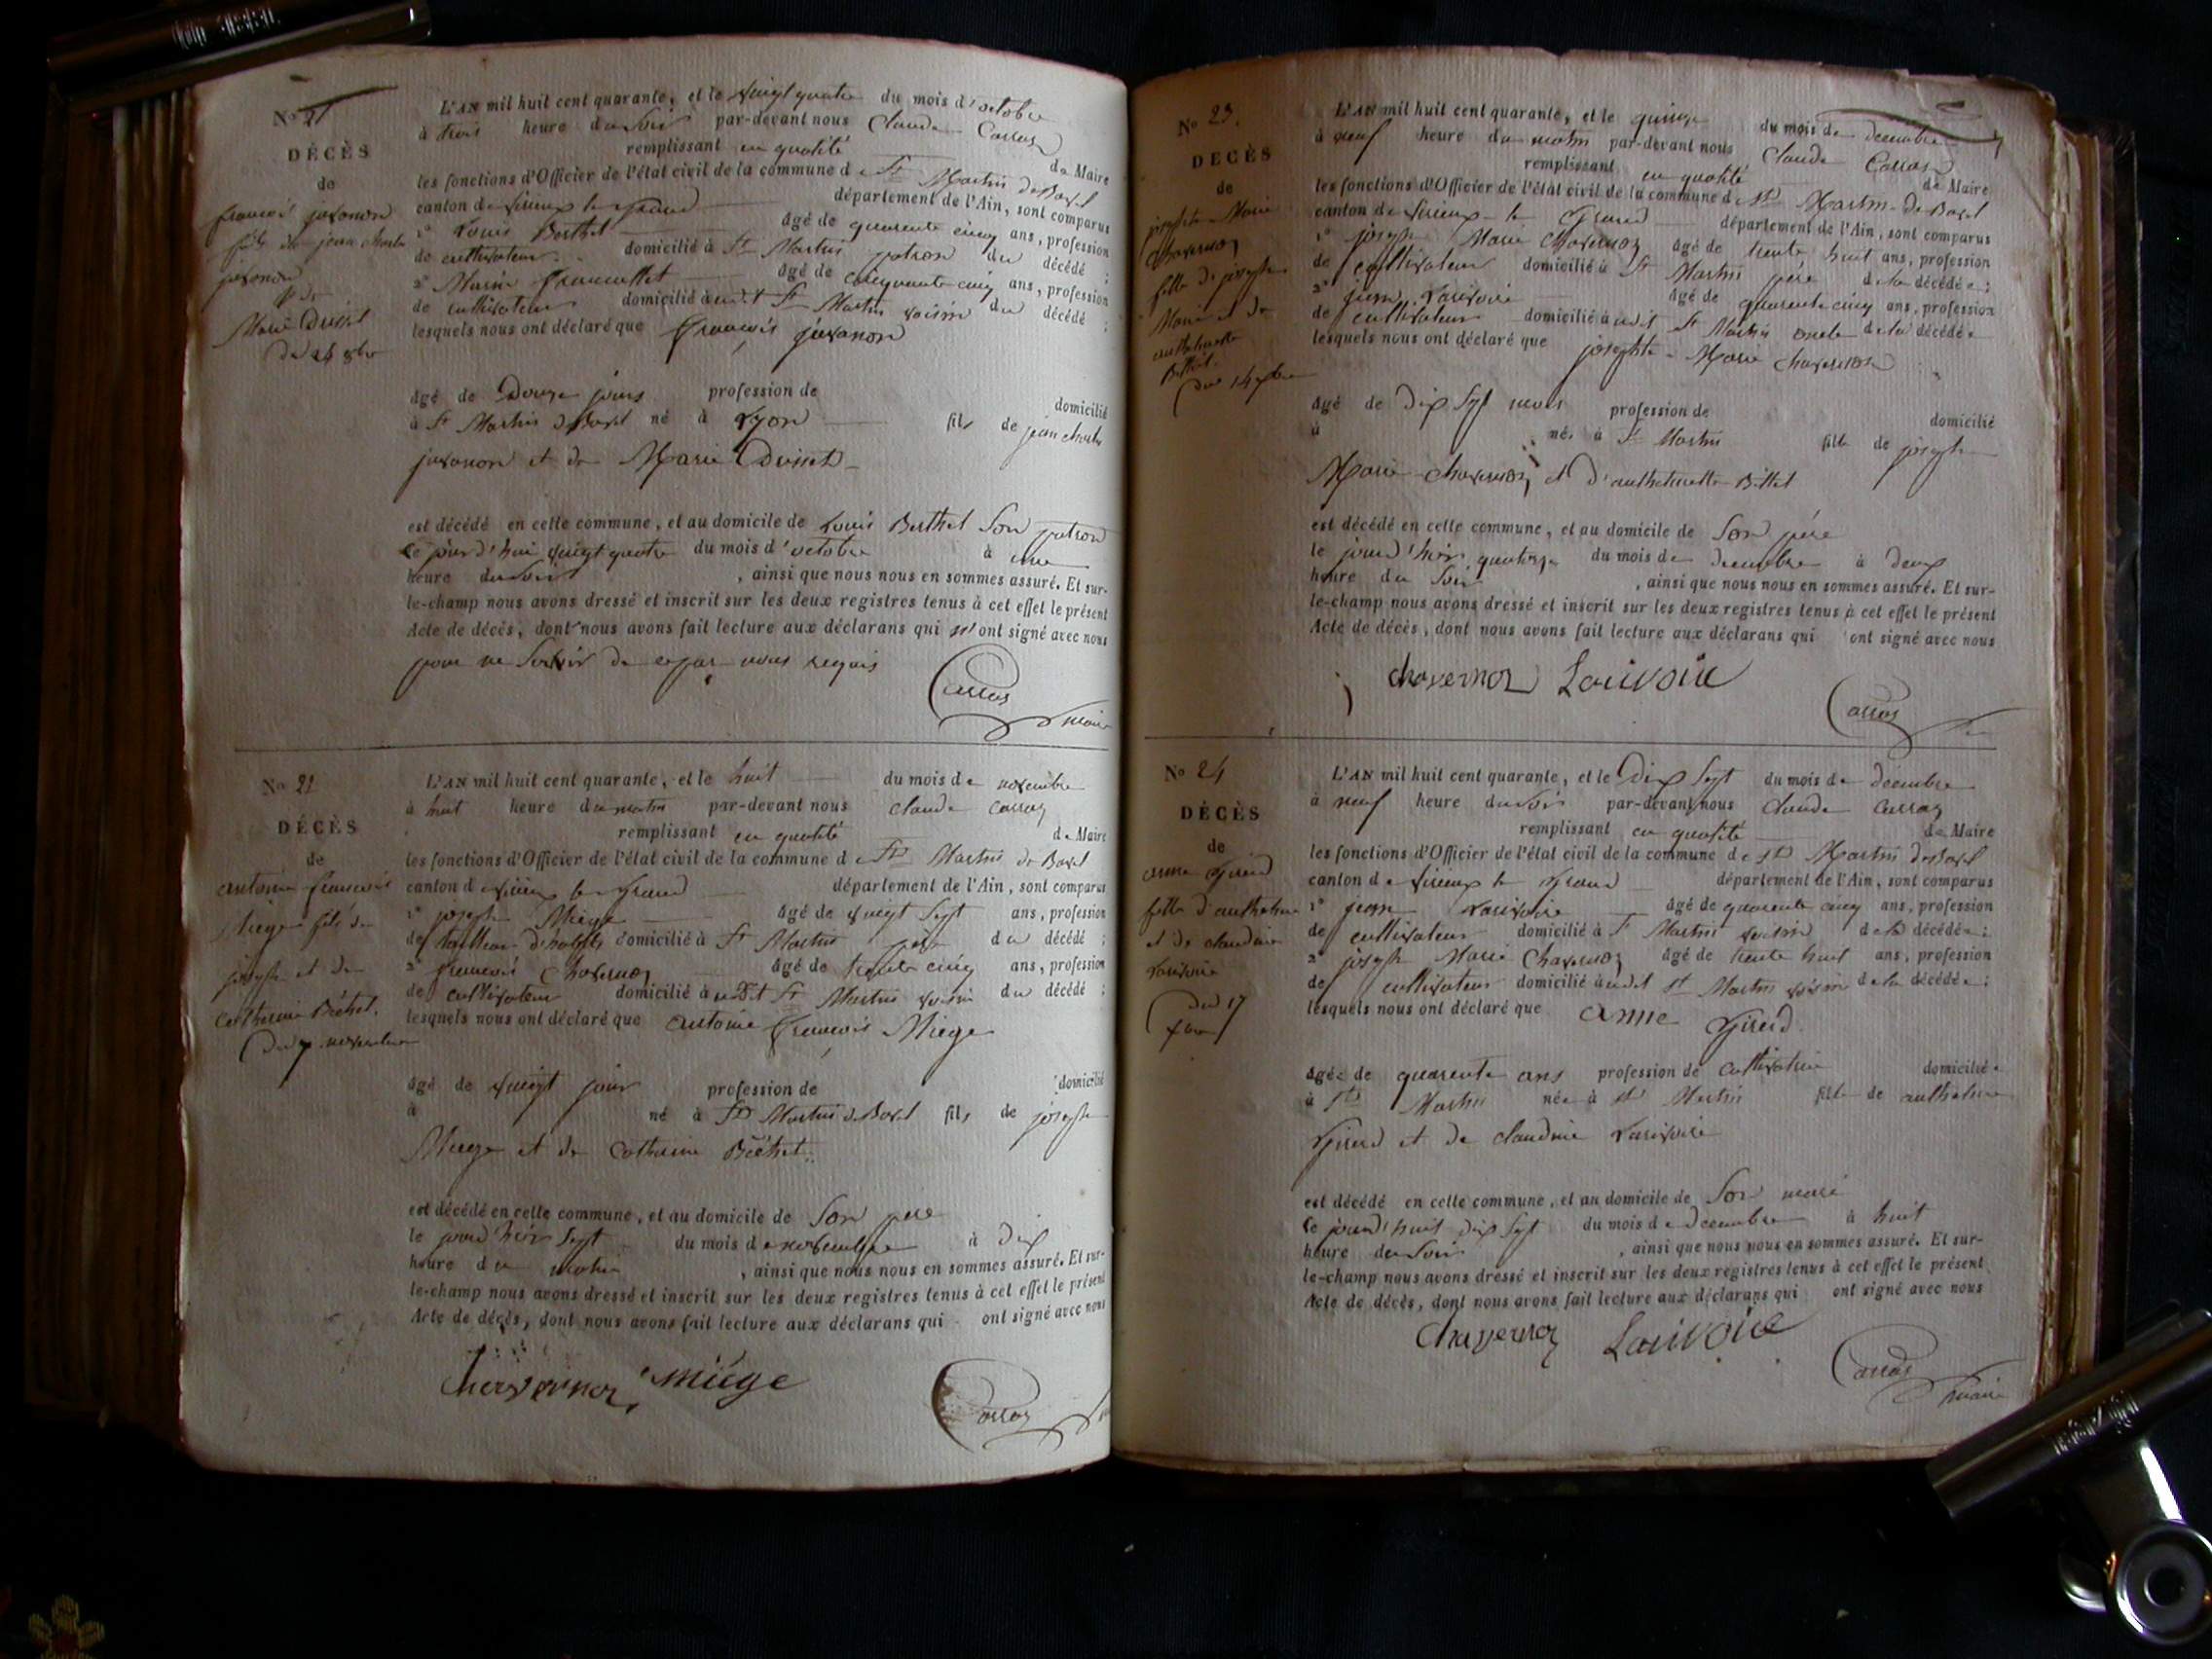 No 21
DÉCÈS
de
françois juvanon
fils de jean charles
juvanon
& de
Marie Drisset
du 24 8bre
L'AN mil huit cent quarante, et le vingt quatre du mois d'octobre
à trois heure du soir par-devant nous Claude Carraz
remplissant en qualité de Maire
les fonctions d'Officier de l'état civil de la commune de St Martin de Bavel
canton de Virieux le Grand département de l'Ain, sont comparus
1° Louis Berthet âgé de quarente cinq ans, profession
de cultivateur domicilié à St Martin patron du décédé ;
2° Marin francillet âgé de cinquante cinq ans, profession
de cultivateur domicilié audit St Martin voisin du décédé ;
lesquels nous ont déclaré que François juvanon
âgé de Douze jours profession de domicilié
à St Martin de Bavel né à Lyon fils de jean charles
juvanon et de Marie Drisset
est décédé en cette commune, et au domicile de Louis Berthet Son patron
ce jourd'hui vingt quatre du mois d'octobre à une
heure du soir , ainsi que nous nous en sommes assuré. Et sur-
le-champ nous avons dressé et inscrit sur les deux registres tenus à cet effet le présent
Acte de décès, dont nous avons fait lecture aux déclarans qui n'ont signé avec nous
pour ne Savoir de ce par nous requis
Carraz
maire
No 22
DÉCÈS
de
antoine françois
Miege fils de
joseph et de
Catherine Béthet.
du 7 novembre
L'AN mil huit cent quarante, et le huit du mois de novembre
à huit heure du matin par-devant nous claude carraz
remplissant en qualité de Maire
les fonctions d'Officier de l'état civil de la commune de St Martin de Bavel
canton de Virieux le Grand département de l'Ain, sont comparus
1° joseph Miege âgé de vingt Sept ans, profession
de tailleur d'habits domicilié à St Martin père du décédé ;
2° francois Chavernoz âgé de trente cinq ans, profession
de cultivateur domicilié audit St Martin voisin du décédé ;
lesquels nous ont déclaré que antoine François Miege
âgé de vingt jour profession de domicilié
à né à St Martin de Bavel fils de joseph
Miege et de Catherine Béthet
est décédé en cette commune, et au domicile de Son père
le jourd'hier Sept du mois de novembre à dix
heure du matin , ainsi que nous nous en sommes assuré. Et sur-
le-champ nous avons dressé et inscrit sur les deux registres tenus à cet effet le présent
Acte de décès, dont nous avons fait lecture aux déclarans qui ont signé avec nous
Chavernoz Miége
Carraz
No 23.
DÉCÈS
de
josephte Marie
Chavernoz
fille de joseph
Marie et de
anthelmette
Bittet.
du 14 xbre
L'AN mil huit cent quarante, et le quinze du mois de decembre
à neuf heure du matin par-devant nous Claude Carraz
remplissant en qualité de Maire
les fonctions d'Officier de l'état civil de la commune de St Martin de Bavel
canton de Virieux le Grand département de l'Ain, sont comparus
1° joseph Marie Chavernoz âgé de trente huit ans, profession
de cultivateur domicilié à St Martin père de la décédée ;
2° jean Larivoire âgé de quarente cinq ans, profession
de cultivateur domicilié audit St Martin oncle de la décédée
lesquels nous ont déclaré que josephte Marie Chavernoz
âgé de dix Sept mois profession de domicilié
à née à St Martin fille de joseph
Marie Chavernoz et d'anthelmette Bittet
est décédé en cette commune, et au domicile de Son père
le jourd'hier quatorze du mois de decembre à deux
heure du Soir , ainsi que nous nous en sommes assuré. Et sur-
le-champ nous avons dressé et inscrit sur les deux registres tenus à cet effet le présent
Acte de décès, dont nous avons fait lecture aux déclarans qui ont signé avec nous
Chavernoz Larivoire
Carraz
No 24
DÉCÈS
de
anne Girerd
fille d'anthelme
et de claudine
Larivoire
du 17
xbre
L'AN mil huit cent quarante, et le Dix Sept du mois de decembre
à neuf heure du soir par-devant nous claude carraz
remplissant en qualité de Maire
les fonctions d'Officier de l'état civil de la commune de St Martin de Bavel
canton de Virieux le Grand département de l'Ain, sont comparus
1° jean Larivoire âgé de quarente cinq ans, profession
de cultivateur domicilié à St Martin voisin de la décédée ;
2° joseph Marie Chavernoz âgé de trente huit ans, profession
de cultivateur domicilié audit St Martin voisin de la décédée ;
lesquels nous ont déclaré que anne Girerd
âgée de quarente ans profession de cultivatrice domiciliée
à St Martin née à St Martin fille de anthelme
Girerd et de claudine Larivoire
est décédé en cette commune, et au domicile de Son mari
ce jourd'huit dix Sept du mois de decembre à huit
heure du Soir , ainsi que nous nous en sommes assuré. Et sur-
le-champ nous avons dressé et inscrit sur les deux registres tenus à cet effet le présent
Acte de décès, dont nous avons fait lecture aux déclarans qui ont signé avec nous
Chavernoz Larivoire
Carraz
maire